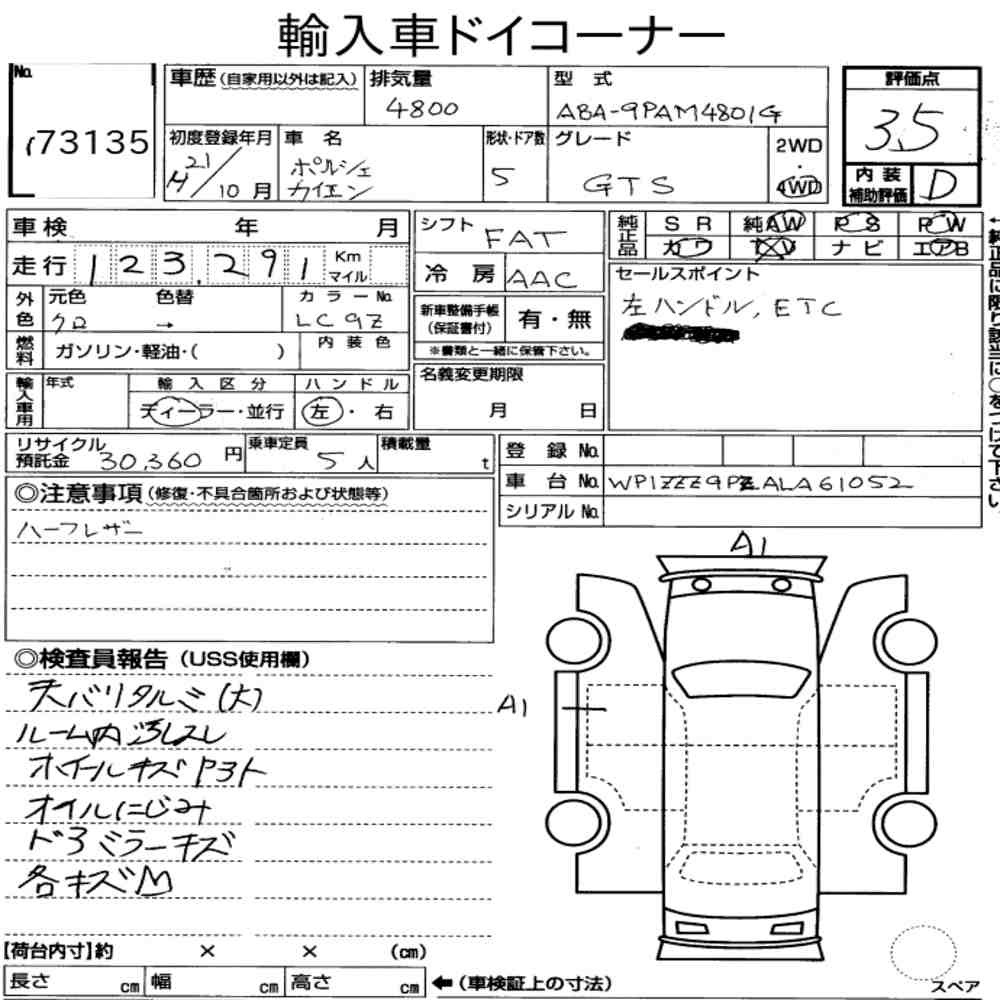 輸入車ドイコーナー
No.
73135
車歴(自家用以外は記入)
排気量
4800
型 式
ABA-9PAM4801G
評価点
3.5
初度登録年月
21/10 月
H
車 名
ポルシェ
カイエン
形状・ドア数
5
グレード
GTS
2WD
・
4WD
内 装
補助評価
D
車検 年 月
走行 123,291 Km
マイル
シフト
FAT
冷 房
AAC
純正品
SR 純AW PS PW
カワ ナビ エアB
←純正品に限り該当に○をつけて下さい。
外色
元色 色替
クロ →
カラーNo.
LC9Z
燃料
ガソリン・軽油・( )
内 装 色
新車整備手帳
(保証書付)
有・無
※書類と一緒に保管下さい。
セールスポイント
左ハンドル, ETC
輸入車用
年式
輸 入 区 分
ディーラー・並行
ハ ン ド ル
左・右
名義変更期限
月 日
リサイクル
預託金 30,360 円
乗車定員
5 人
積載量
t
登 録 No.
車 台 No. WP1ZZZ9PZALA61052
シリアル No.
◎注意事項(修復・不具合箇所および状態等)
ハーフレザー
◎検査員報告(USS使用欄)
天バリタルミ(大)
ルーム内汚レスレ
ホイールキズ
オイルにじみ
ドアミラーキズ
各キズM
A1
A1
【荷台内寸】約 × × (cm)
長さ cm 幅 cm 高さ cm
←(車検証上の寸法)
スペア